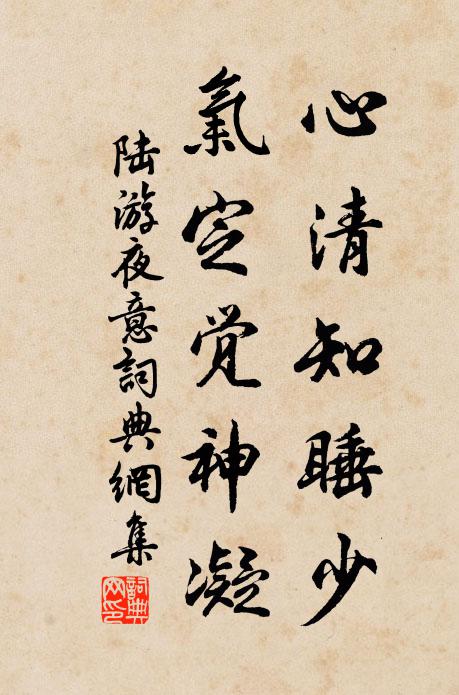 心清知睡少
氣定觉神凝
陆游夜意詞典網集
詞典
网印